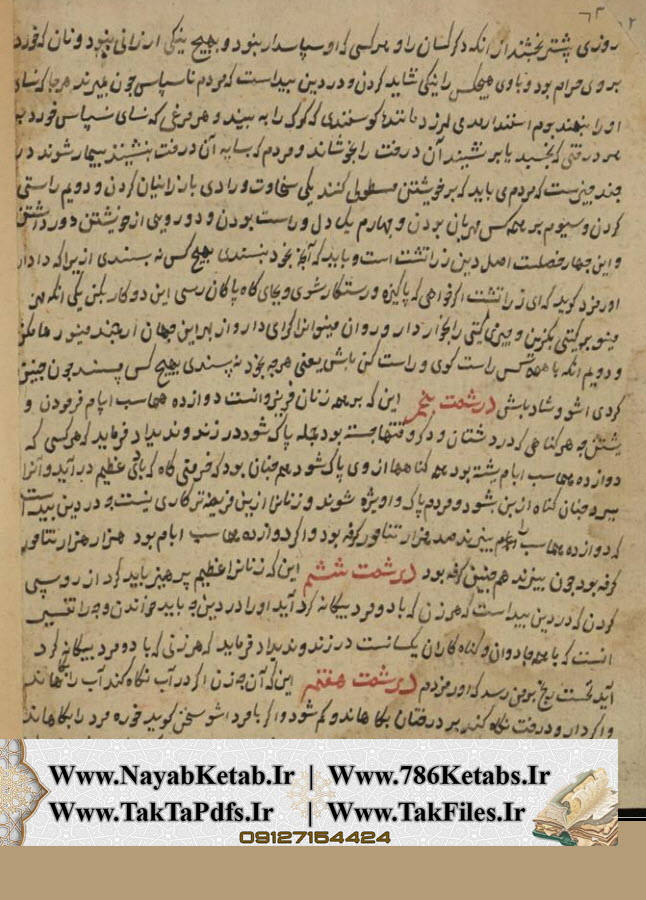 روزی بیشتر بخشند از انکه دکر کسان را و هر کسی که او سپاسدار بنود و بهیچ نیکی ارزانی بنود و نان که خورد
بروی حرام بود و باوی هیچکس را نیکی نشاید کردن و در دین پیداست که مردم ناسپاسی چون بمیرند هر جا که نسای
او را بنهند بوم اسفندارمدی لرزد مانند کوسفندی که کرک را به بیند و هر مرغی که نسای سپاسی خورد بر
هر درختی که بخسبد یا بر نشیند آن درخت را بخوشاند و مردم که بسایه آن درخت بنشیند بیمار شوند در
چند چیزست که مردمی باید که بر خویشتن مستولی کنند یکی سخاوت و رادی بارزانیان کردن و دویم راستی
کردن و سیوم بر همه کس مهربان بودن و چهارم یک دل و راست بودن و دوروی از خویشتن دور داشتن
و این چهار خصلت اصل دین زراتشت است و باید که آنچه بخود نپسندی بهیچ کس نه پسندی ازیرا که دادار
اورمزد کوید که ای زراتشت اکر خواهی که پاکیزه و رستکار شوی و بجای کاه پاکان رسی این دو کار بکن یکی انکه من
مینو بر کیتی بکزین و چیزی کیتی را بخوار دار و روان مینوانرا کرامی دار و از بهر این جهان ارجمند مینو رها مکن
و دویم انکه با همه کس راست کوی و راست کن باش یعنی هر چه بخود نه پسندی بهیچ کس مپسند چون چنین
کردی اشو و شاد باش درشمت پنجم این که بر همه زنان فریزوانست دوازده هماسب ایام فرمودن و
یشتن و هر کناهی که در دشتان و دکر وقتها جسته بود جمله پاک شود در زند وندیداد فرماید که هر کسی که
دوازده هماسب ایام یشته بود همه کناهها از وی پاک شود همچنان بود که خرمنی کاه که بادی عظیم در آید و آنرا
ببرد چنان کناه از بن بشود و مردم پاک و اویژه شوند و زنانرا ازین فریضه تر کاری نیست و در دین پیداست
که دوازده هماسب را چهم بیزند صد هزار تناور کرفه بود و اکر دوازده هماسب ایام بود هزار هزار تناور
کرفه بود چون بیزند همچنین کرفه بود درشمت ششم این که زنانرا عظیم پرهیز باید کرد از روسپی
کردن که در دین پیداست که هر زن که با دو مرد بیکانه کرد آید او را در دین جه باید خواندن و جه را تفسیر
انست که با همه جادوان و کناه کاران یکسانست در زند وندیداد فرماید که هر زنی که با دو مرد بیکانه کرد
آید نخست رنج بر من رسد که اورمزدم درشمت هفتم این که آن جه زن اکر در آب نکاه کند آب را بکاهاند
و اکر دار و درخت نکاه کند بر درختان بکاهاند و کم شود و اکر با مرد اشو سخن کوید خوره مرد را بکاهاند
Www.NayabKetab.Ir | Www.786Ketabs.Ir
Www.TakTaPdfs.Ir | Www.TakFiles.Ir
09127154424